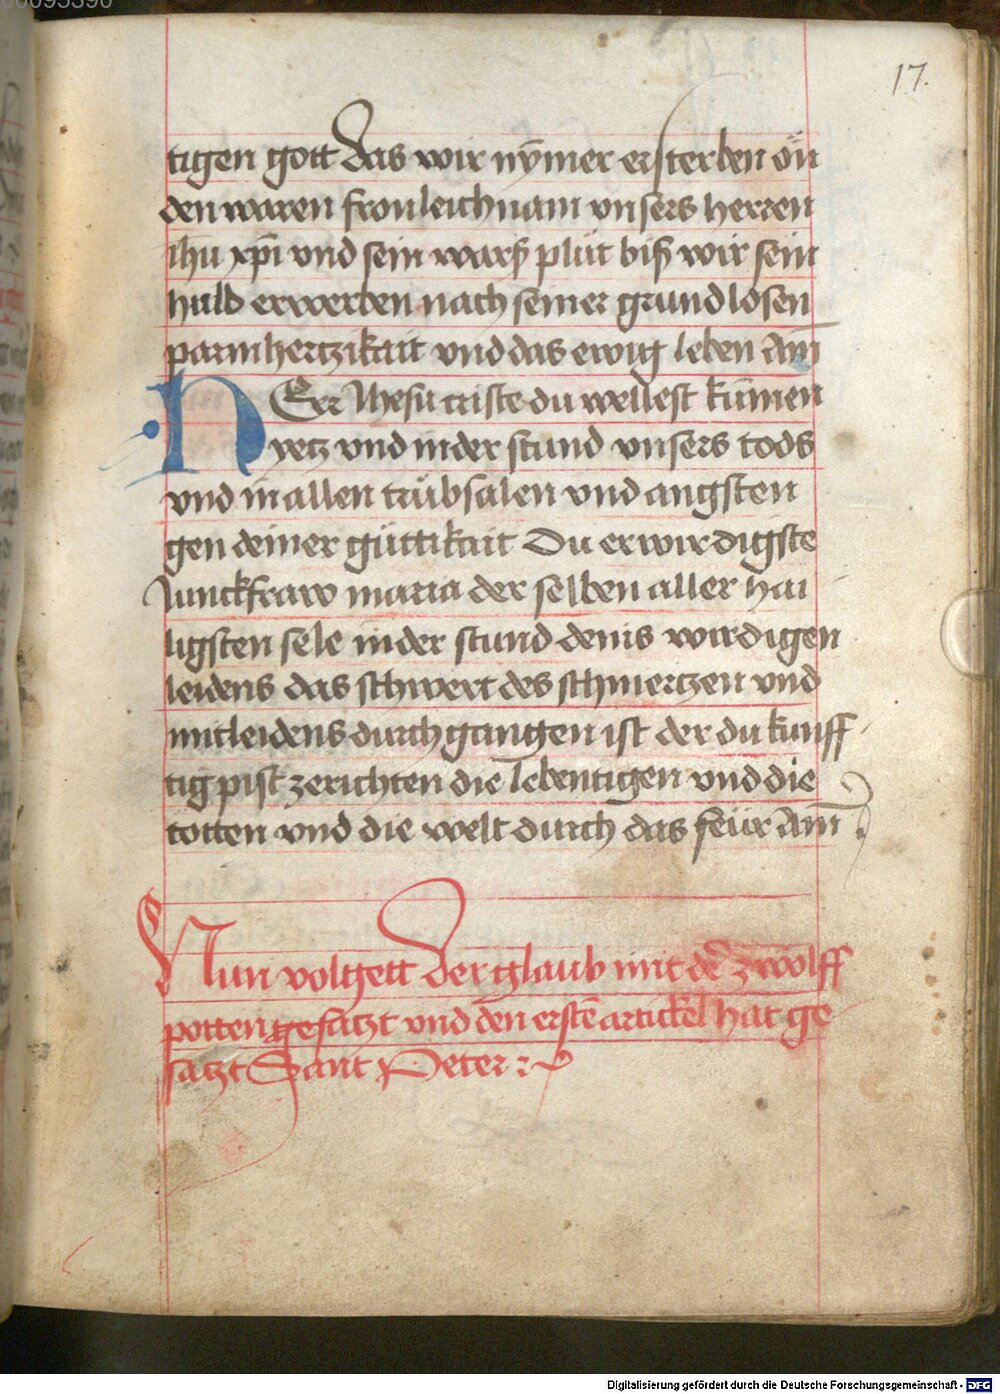 00095390
17.
tigen gott das wir nÿmer ersterben on
den waren fronleichnam vnsers herren
ihu xpi vnd sein warß plůt biß wir sein
huld erwerben nach seiner grundlosen
parmhertzikait vnd das ewig leben Am̄
HErr Jhesu criste du wellest kūmen
yetz vnd in der stund vnsers tods
vnd in allen trübsalen vnd angsten
gen deiner güttikait Du erwirdigste
Junckfraw maria der selben aller hai
ligsten sele in der stund denis wirdigen
leidens das schwert des schmertzen vnd
mitleidens durchgangen ist der du kunff
tig pist zerichten die lebentigen vnd die
totten vnd die welt durch das feür Am̄
Nun volgett der glaub mit dē zwölff
potten gesatzt vnd den erstē artickel hat ge
satzt Sant Peter
Digitalisierung gefördert durch die Deutsche Forschungsgemeinschaft - DFG